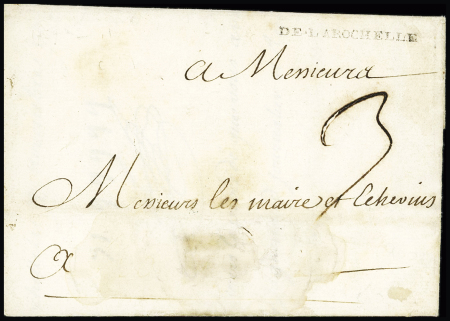 DE·LAROCHELLE
a Messieurs
3
Messieurs les maire et Echevins
a